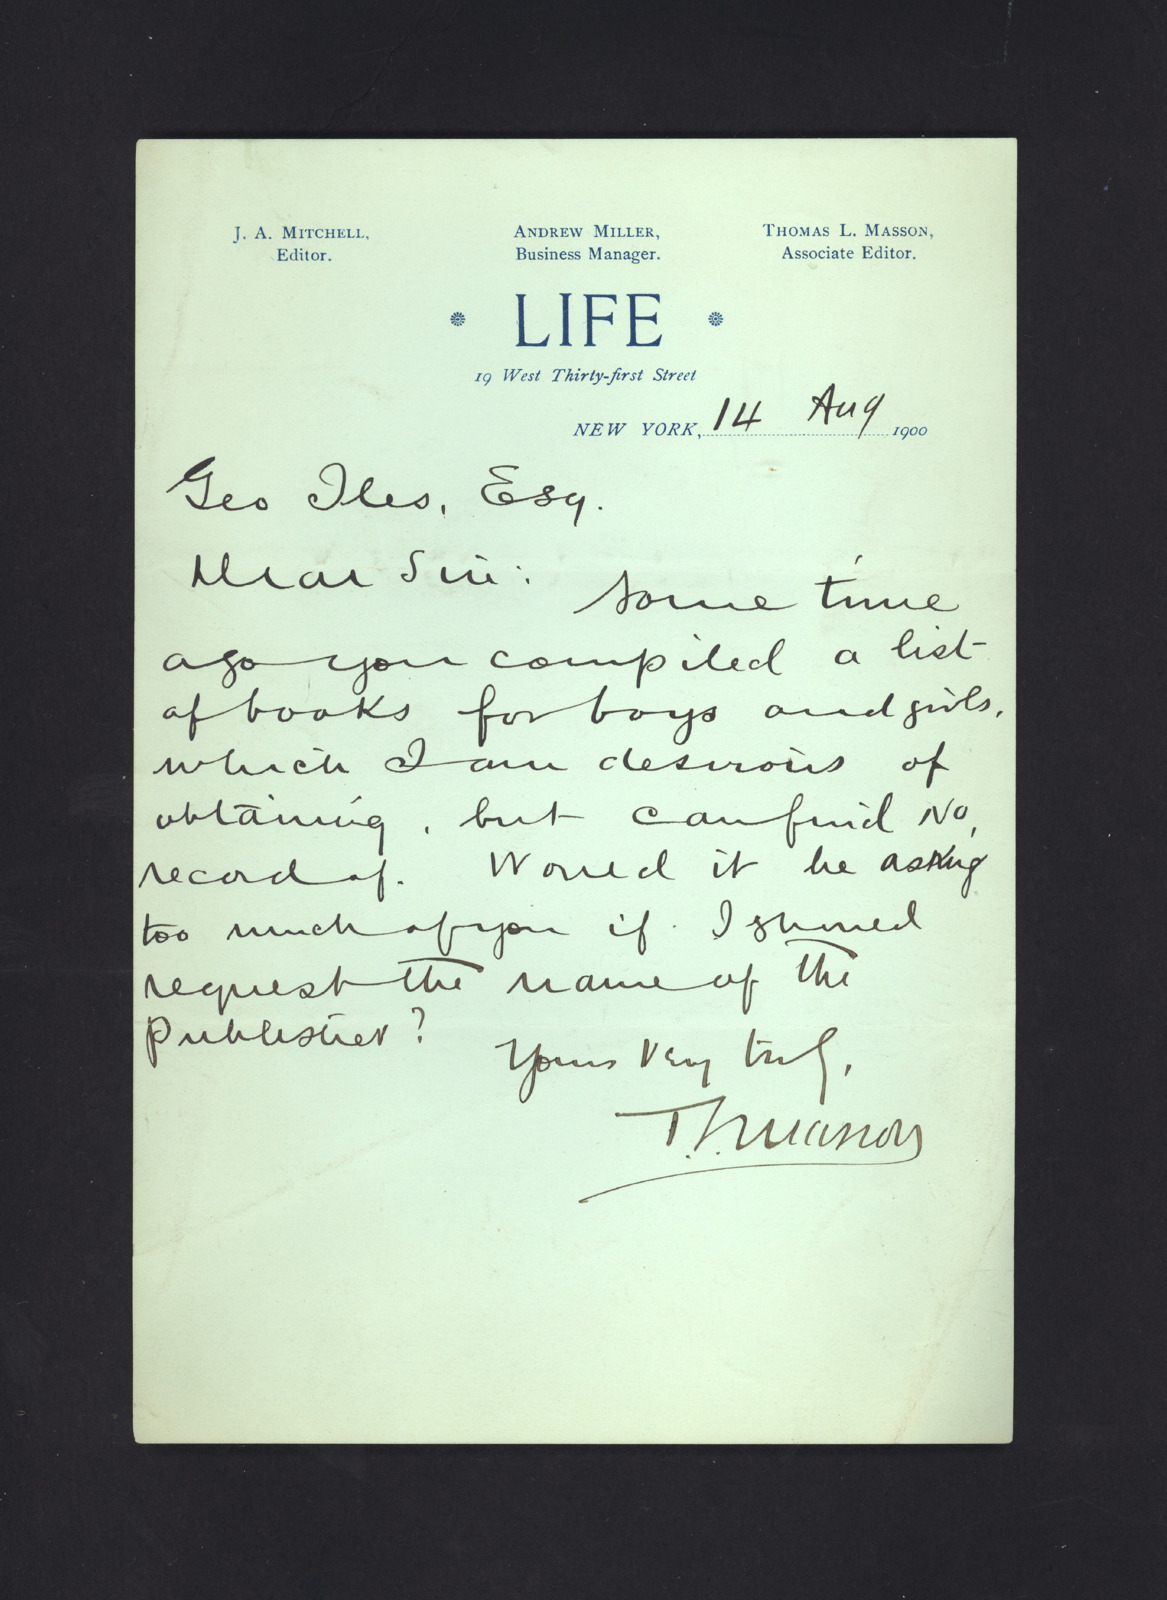 J. A. MITCHELL,
Editor.
ANDREW MILLER,
Business Manager.
THOMAS L. MASSON,
Associate Editor.
LIFE
19 West Thirty-first Street
NEW YORK, 14 Aug 1900
Geo Iles, Esq.
Dear Sir:
Some time
ago you compiled a list
of books for boys and girls,
which I am desirous of
obtaining, but can find no
record of. Would it be asking
too much of you if I should
request the name of the
publisher?
Yours very truly,
T. L. Masson